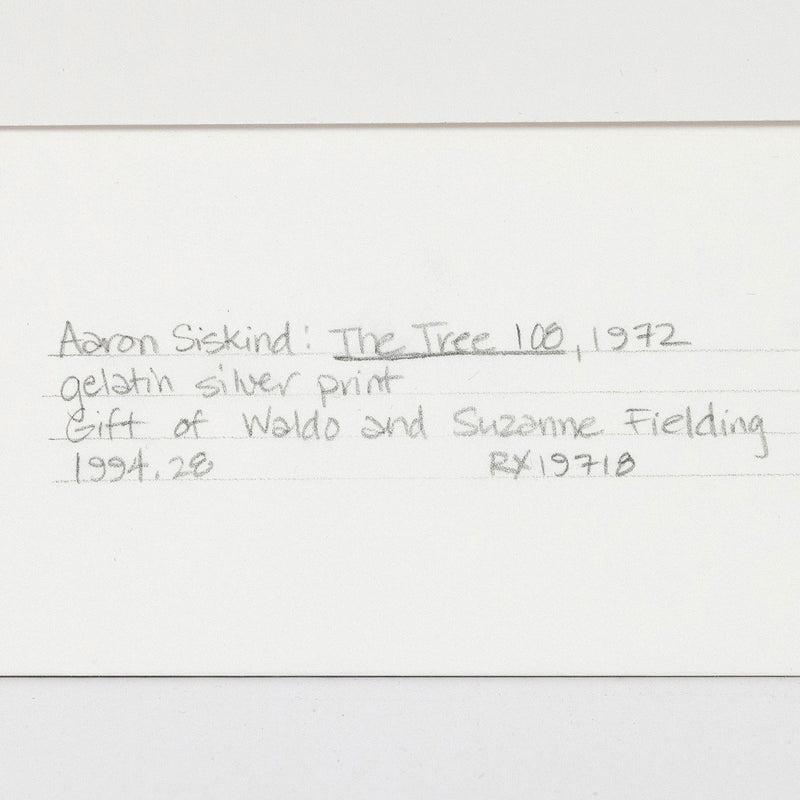 Aaron Siskind: The Tree 108, 1972
gelatin silver print
Gift of Waldo and Suzanne Fielding
1994.28 RX19718